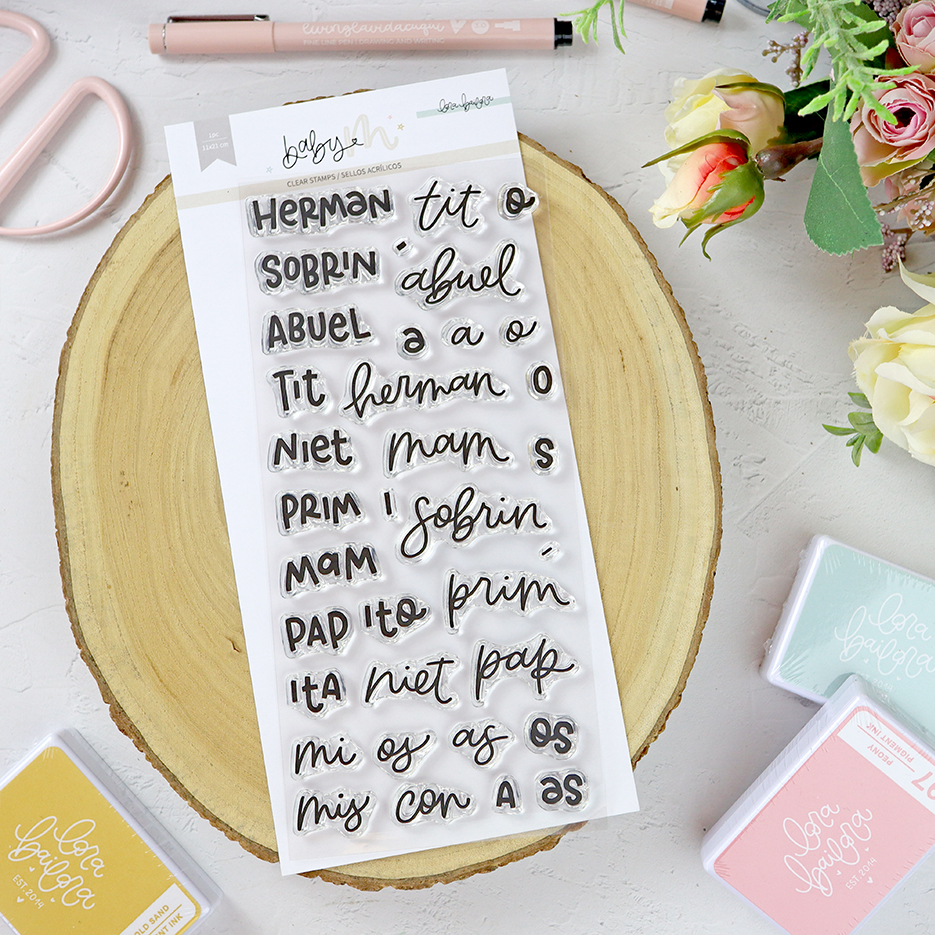 livingtavidaaqui
FINE LINE PEN / DRAWING AND WRITING
1pc
11x21 cm
baby
m
lora bailora
CLEAR STAMPS / SELLOS ACRÍLICOS
HERMAN tit o
SOBRIN abuel
ABUEL a a o
TIT herman O
NIET mam S
PRIM I sobrin
MAM
PAP ITO prim
ITA niet pap
mi os as OS
mis con A as
lora bailora
07
PEONY
PIGMENT INK
lora bailora
EST. 2014
lora bailora
EST. 2014
OLD SAND
NT INK